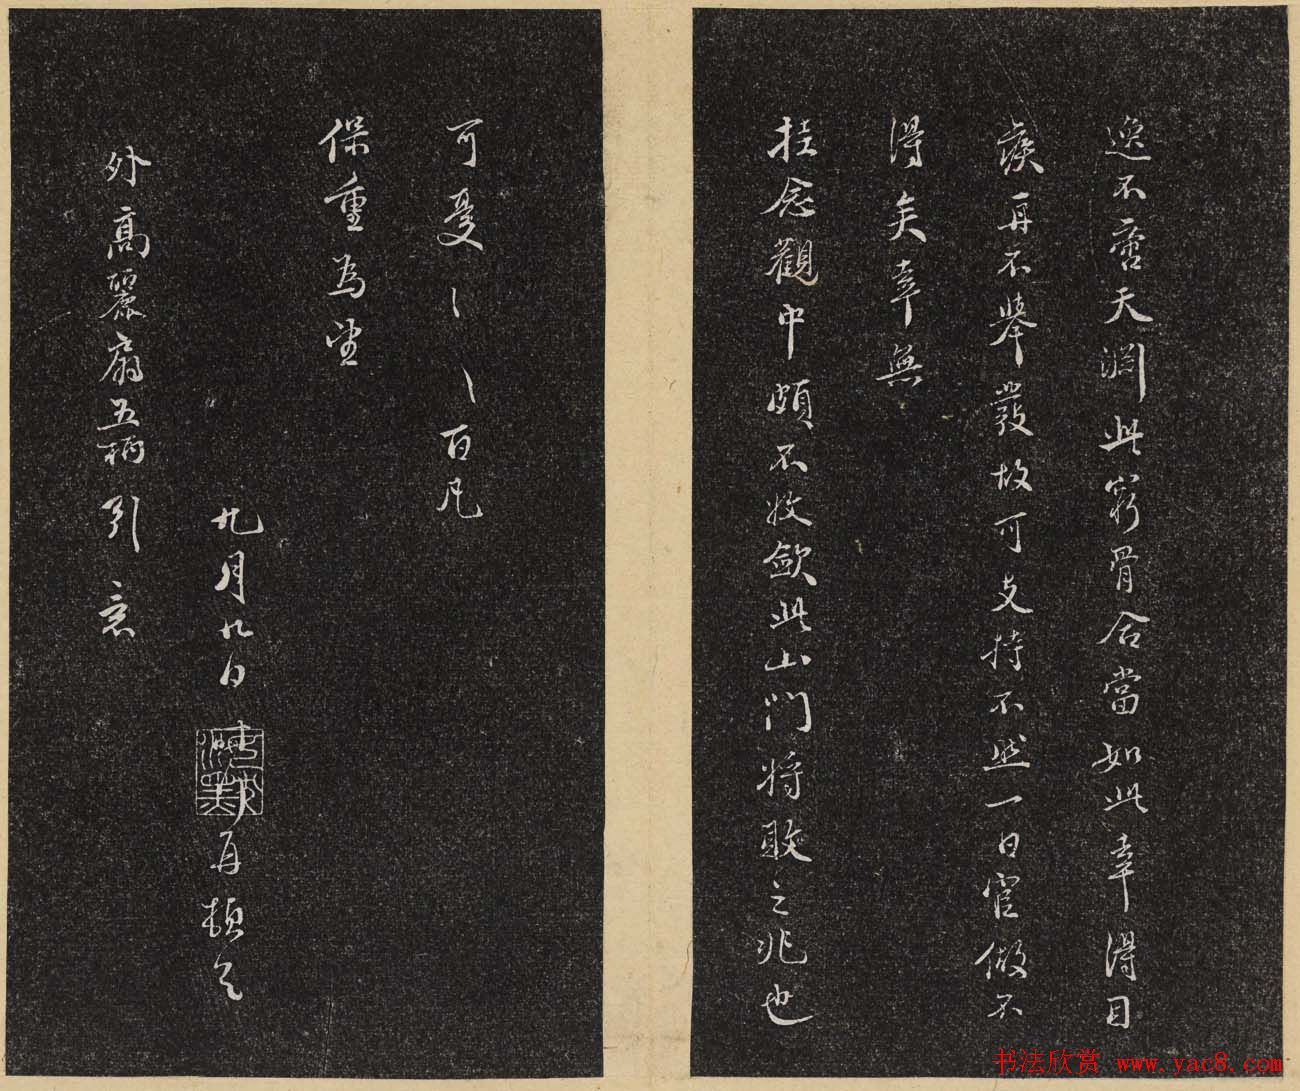 逸不啻天淵此窮骨合當如此幸得目
疾再不舉發故可支持不然一日官做不
得矣幸無
挂念觀中頗不收斂此山門將敗之兆也
可憂〻〻百凡
保重為望
九月九日
再頓首
外高麗扇五柄引意
书法欣赏 www.yac8.com